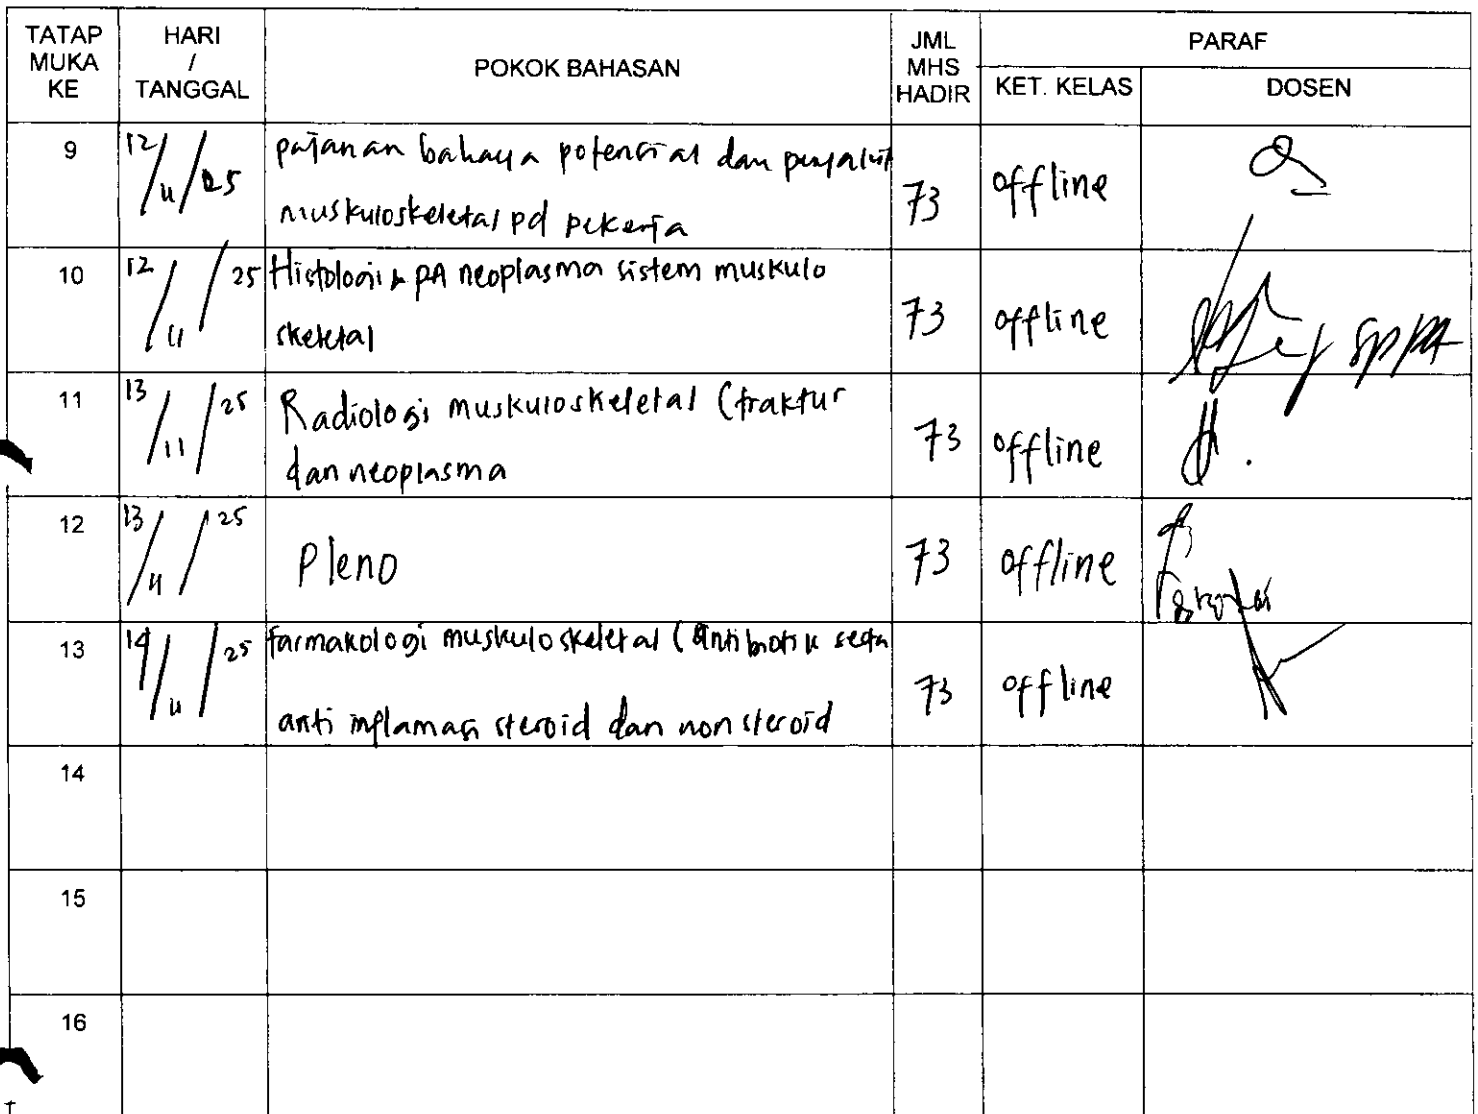 TATAP MUKA KE HARI / TANGGAL POKOK BAHASAN JML MHS HADIR PARAF
KET. KELAS DOSEN
9 12/11/25 pajanan bahaya potensial dan penyakit
muskuloskeletal pd pekerja 73 offline
10 12/11/25 Histologi & PA neoplasma sistem muskulo
skeletal 73 offline sp PA
11 13/11/25 Radiologi muskuloskeletal (fraktur
dan neoplasma 73 offline
12 13/11/25 Pleno 73 offline
13 14/11/25 farmakologi muskuloskeletal (antibiotik serta
anti inflamasi steroid dan non steroid 73 offline
14
15
16